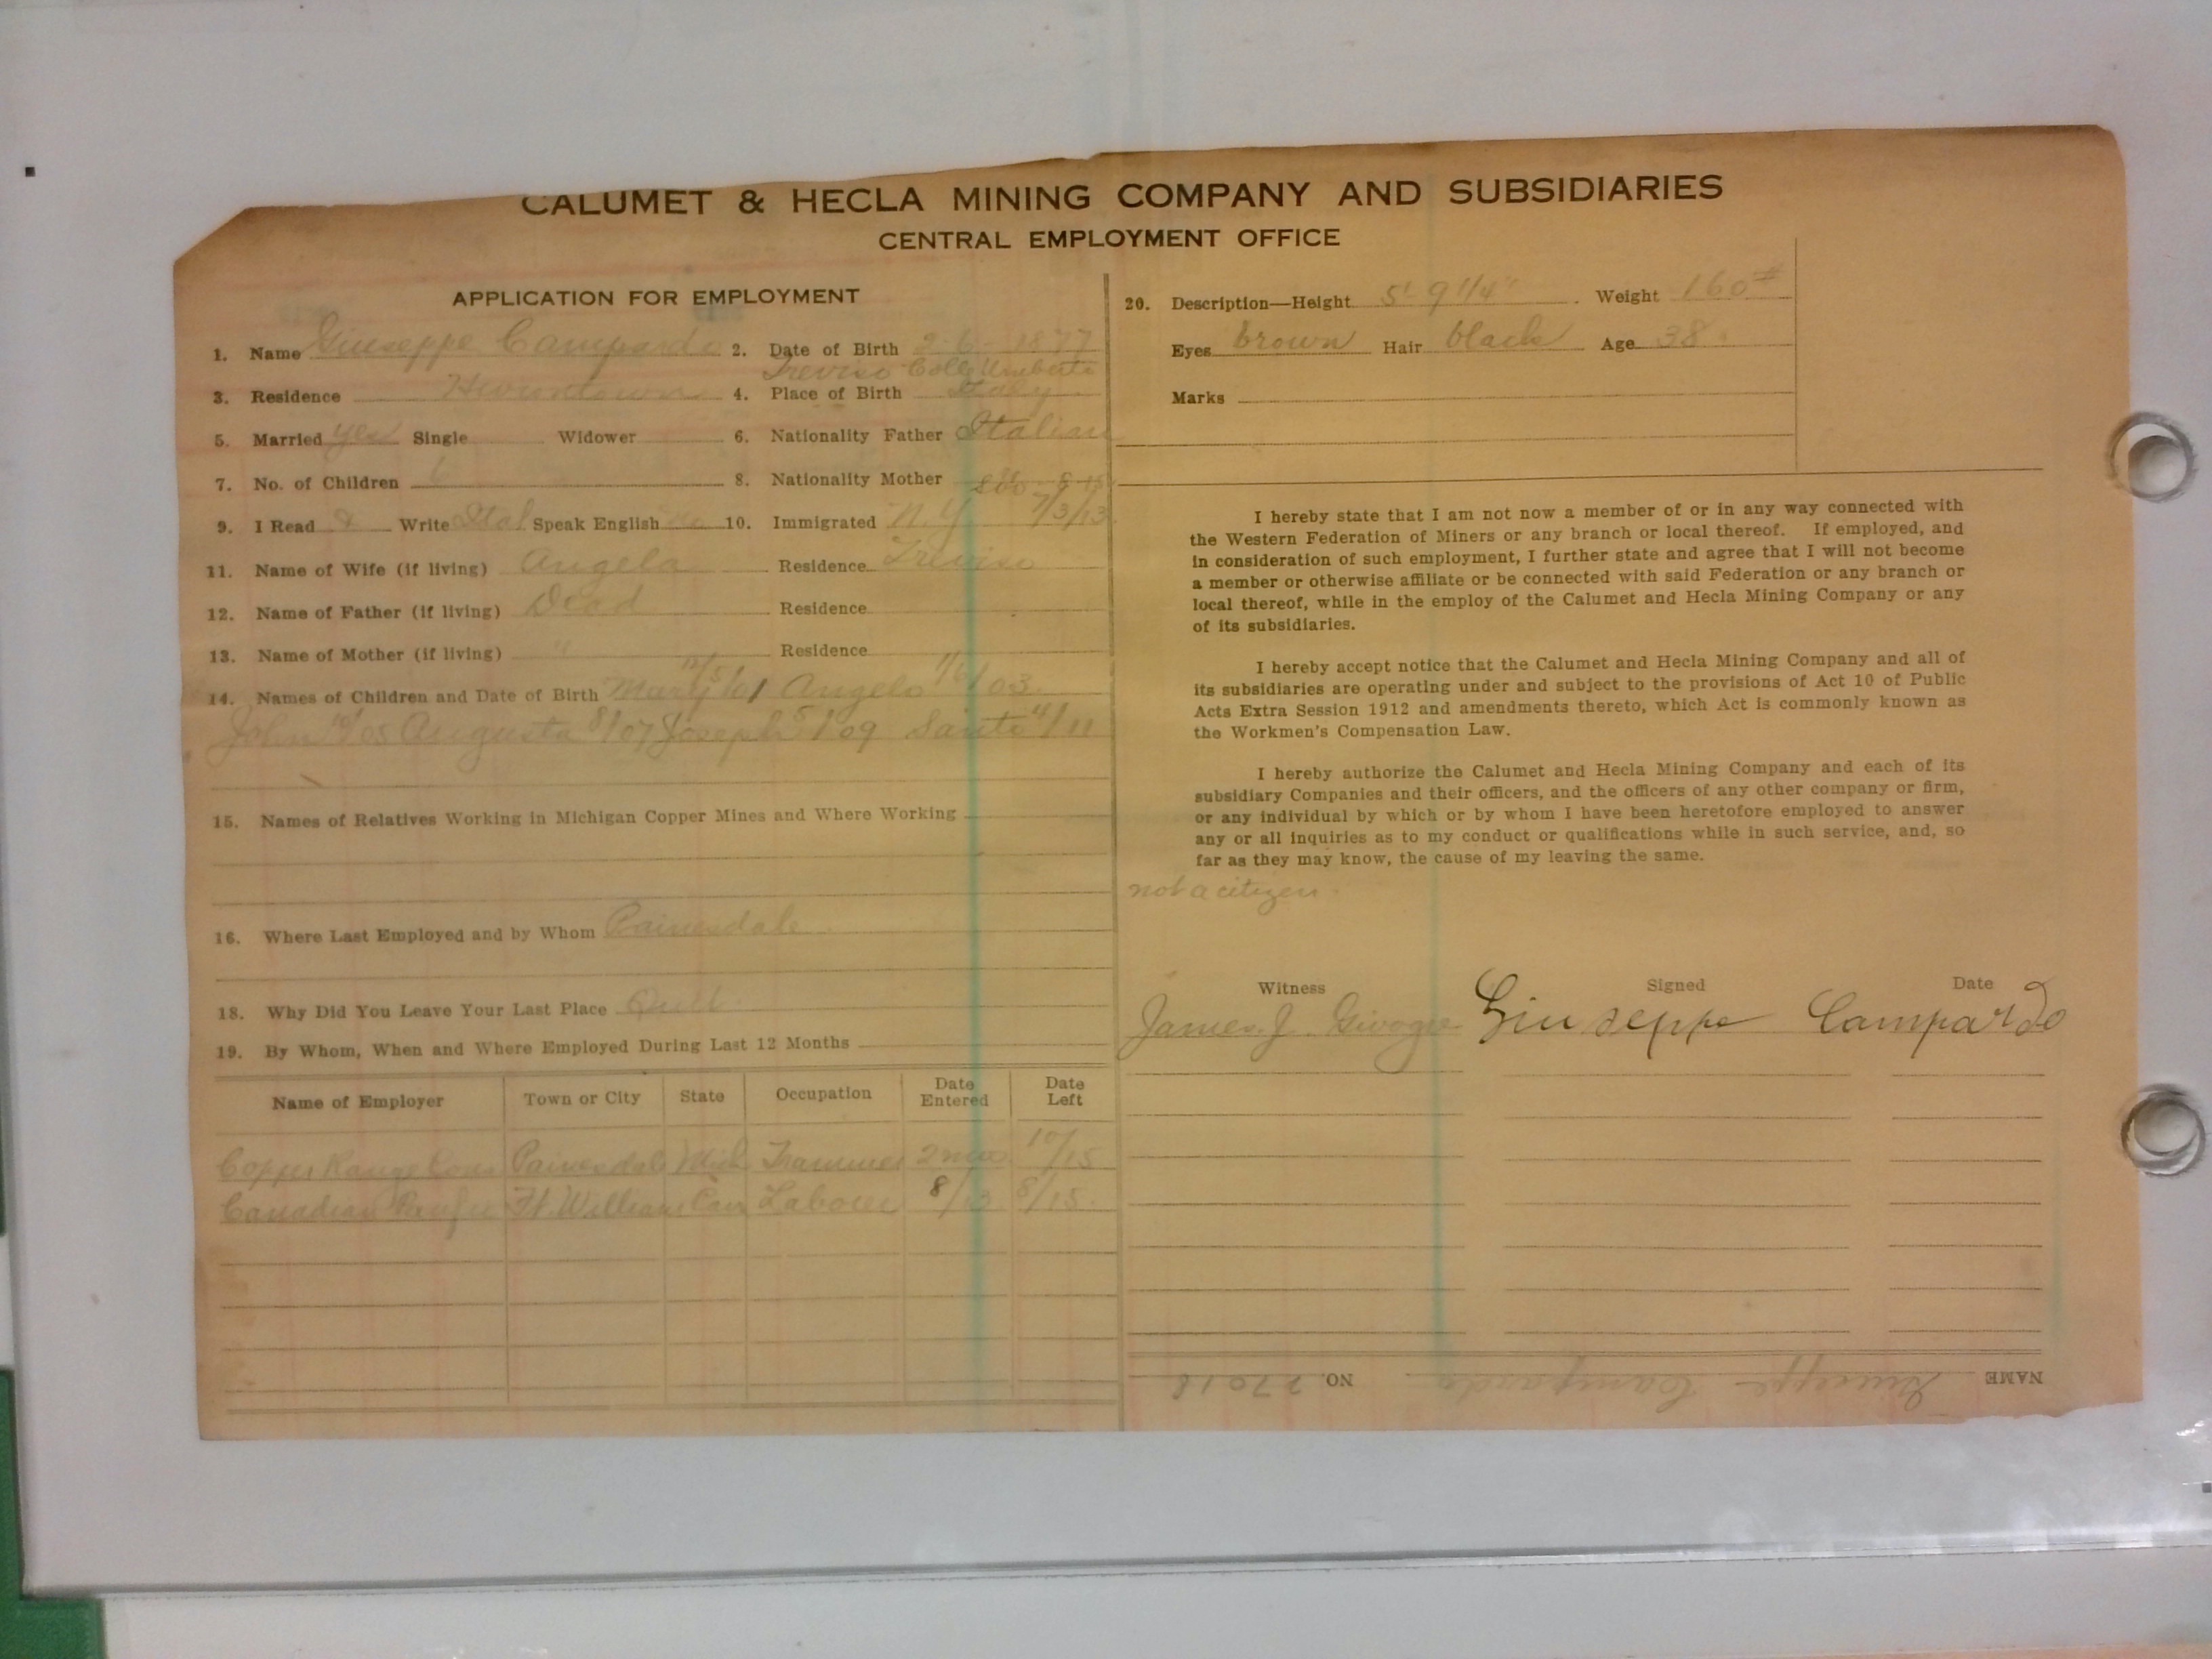 CALUMET & HECLA MINING COMPANY AND SUBSIDIARIES
CENTRAL EMPLOYMENT OFFICE
APPLICATION FOR EMPLOYMENT
1. Name Giuseppe Campardo 2. Date of Birth 2-6-1877
Treviso Colle Umberto
3. Residence 4. Place of Birth Italy
5. Married yes Single Widower 6. Nationality Father Italian
7. No. of Children 6 8. Nationality Mother
9. I Read & Write Ital Speak English no 10. Immigrated N.Y 7/3/13
11. Name of Wife (if living) Angela Residence Treviso
12. Name of Father (if living) Dead Residence
13. Name of Mother (if living) " Residence
14. Names of Children and Date of Birth Mary 12/5/01 Angelo 1/6/03
John 10/05 Augusta 8/07 Joseph 5/09 Santi 4/11
15. Names of Relatives Working in Michigan Copper Mines and Where Working
16. Where Last Employed and by Whom Painesdale
18. Why Did You Leave Your Last Place Quit
19. By Whom, When and Where Employed During Last 12 Months
Name of Employer Town or City State Occupation Date Entered Date Left
Copper Range Cons Painesdale Mich Trammer 2 mos 10/15
Canadian Pacific Ft. William Can Laborer 8/13 8/15
20. Description—Height 5' 9 1/4" Weight 160#
Eyes brown Hair black Age 38
Marks
I hereby state that I am not now a member of or in any way connected with
the Western Federation of Miners or any branch or local thereof. If employed, and
in consideration of such employment, I further state and agree that I will not become
a member or otherwise affiliate or be connected with said Federation or any branch or
local thereof, while in the employ of the Calumet and Hecla Mining Company or any
of its subsidiaries.
I hereby accept notice that the Calumet and Hecla Mining Company and all of
its subsidiaries are operating under and subject to the provisions of Act 10 of Public
Acts Extra Session 1912 and amendments thereto, which Act is commonly known as
the Workmen's Compensation Law.
I hereby authorize the Calumet and Hecla Mining Company and each of its
subsidiary Companies and their officers, and the officers of any other company or firm,
or any individual by which or by whom I have been heretofore employed to answer
any or all inquiries as to my conduct or qualifications while in such service, and, so
far as they may know, the cause of my leaving the same.
not a citizen.
Witness Signed Date
James J. Giuseppe Campardo
NAME Giuseppe Campardo NO. 27018